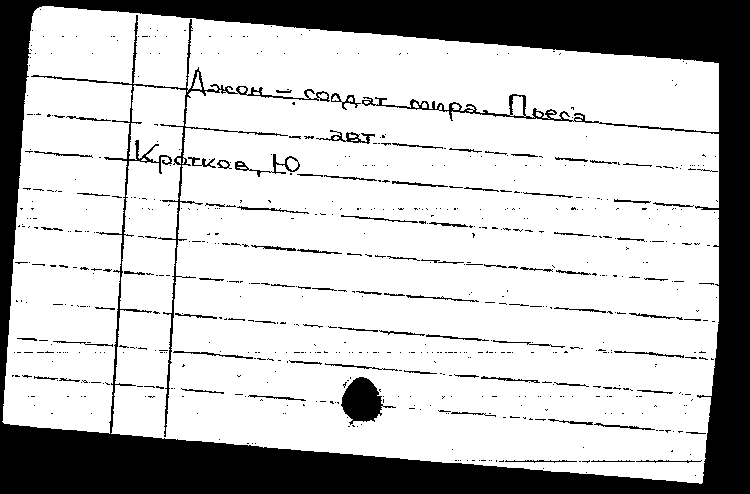 Джон – солдат мира. Пьеса
авт.
Кротков, Ю